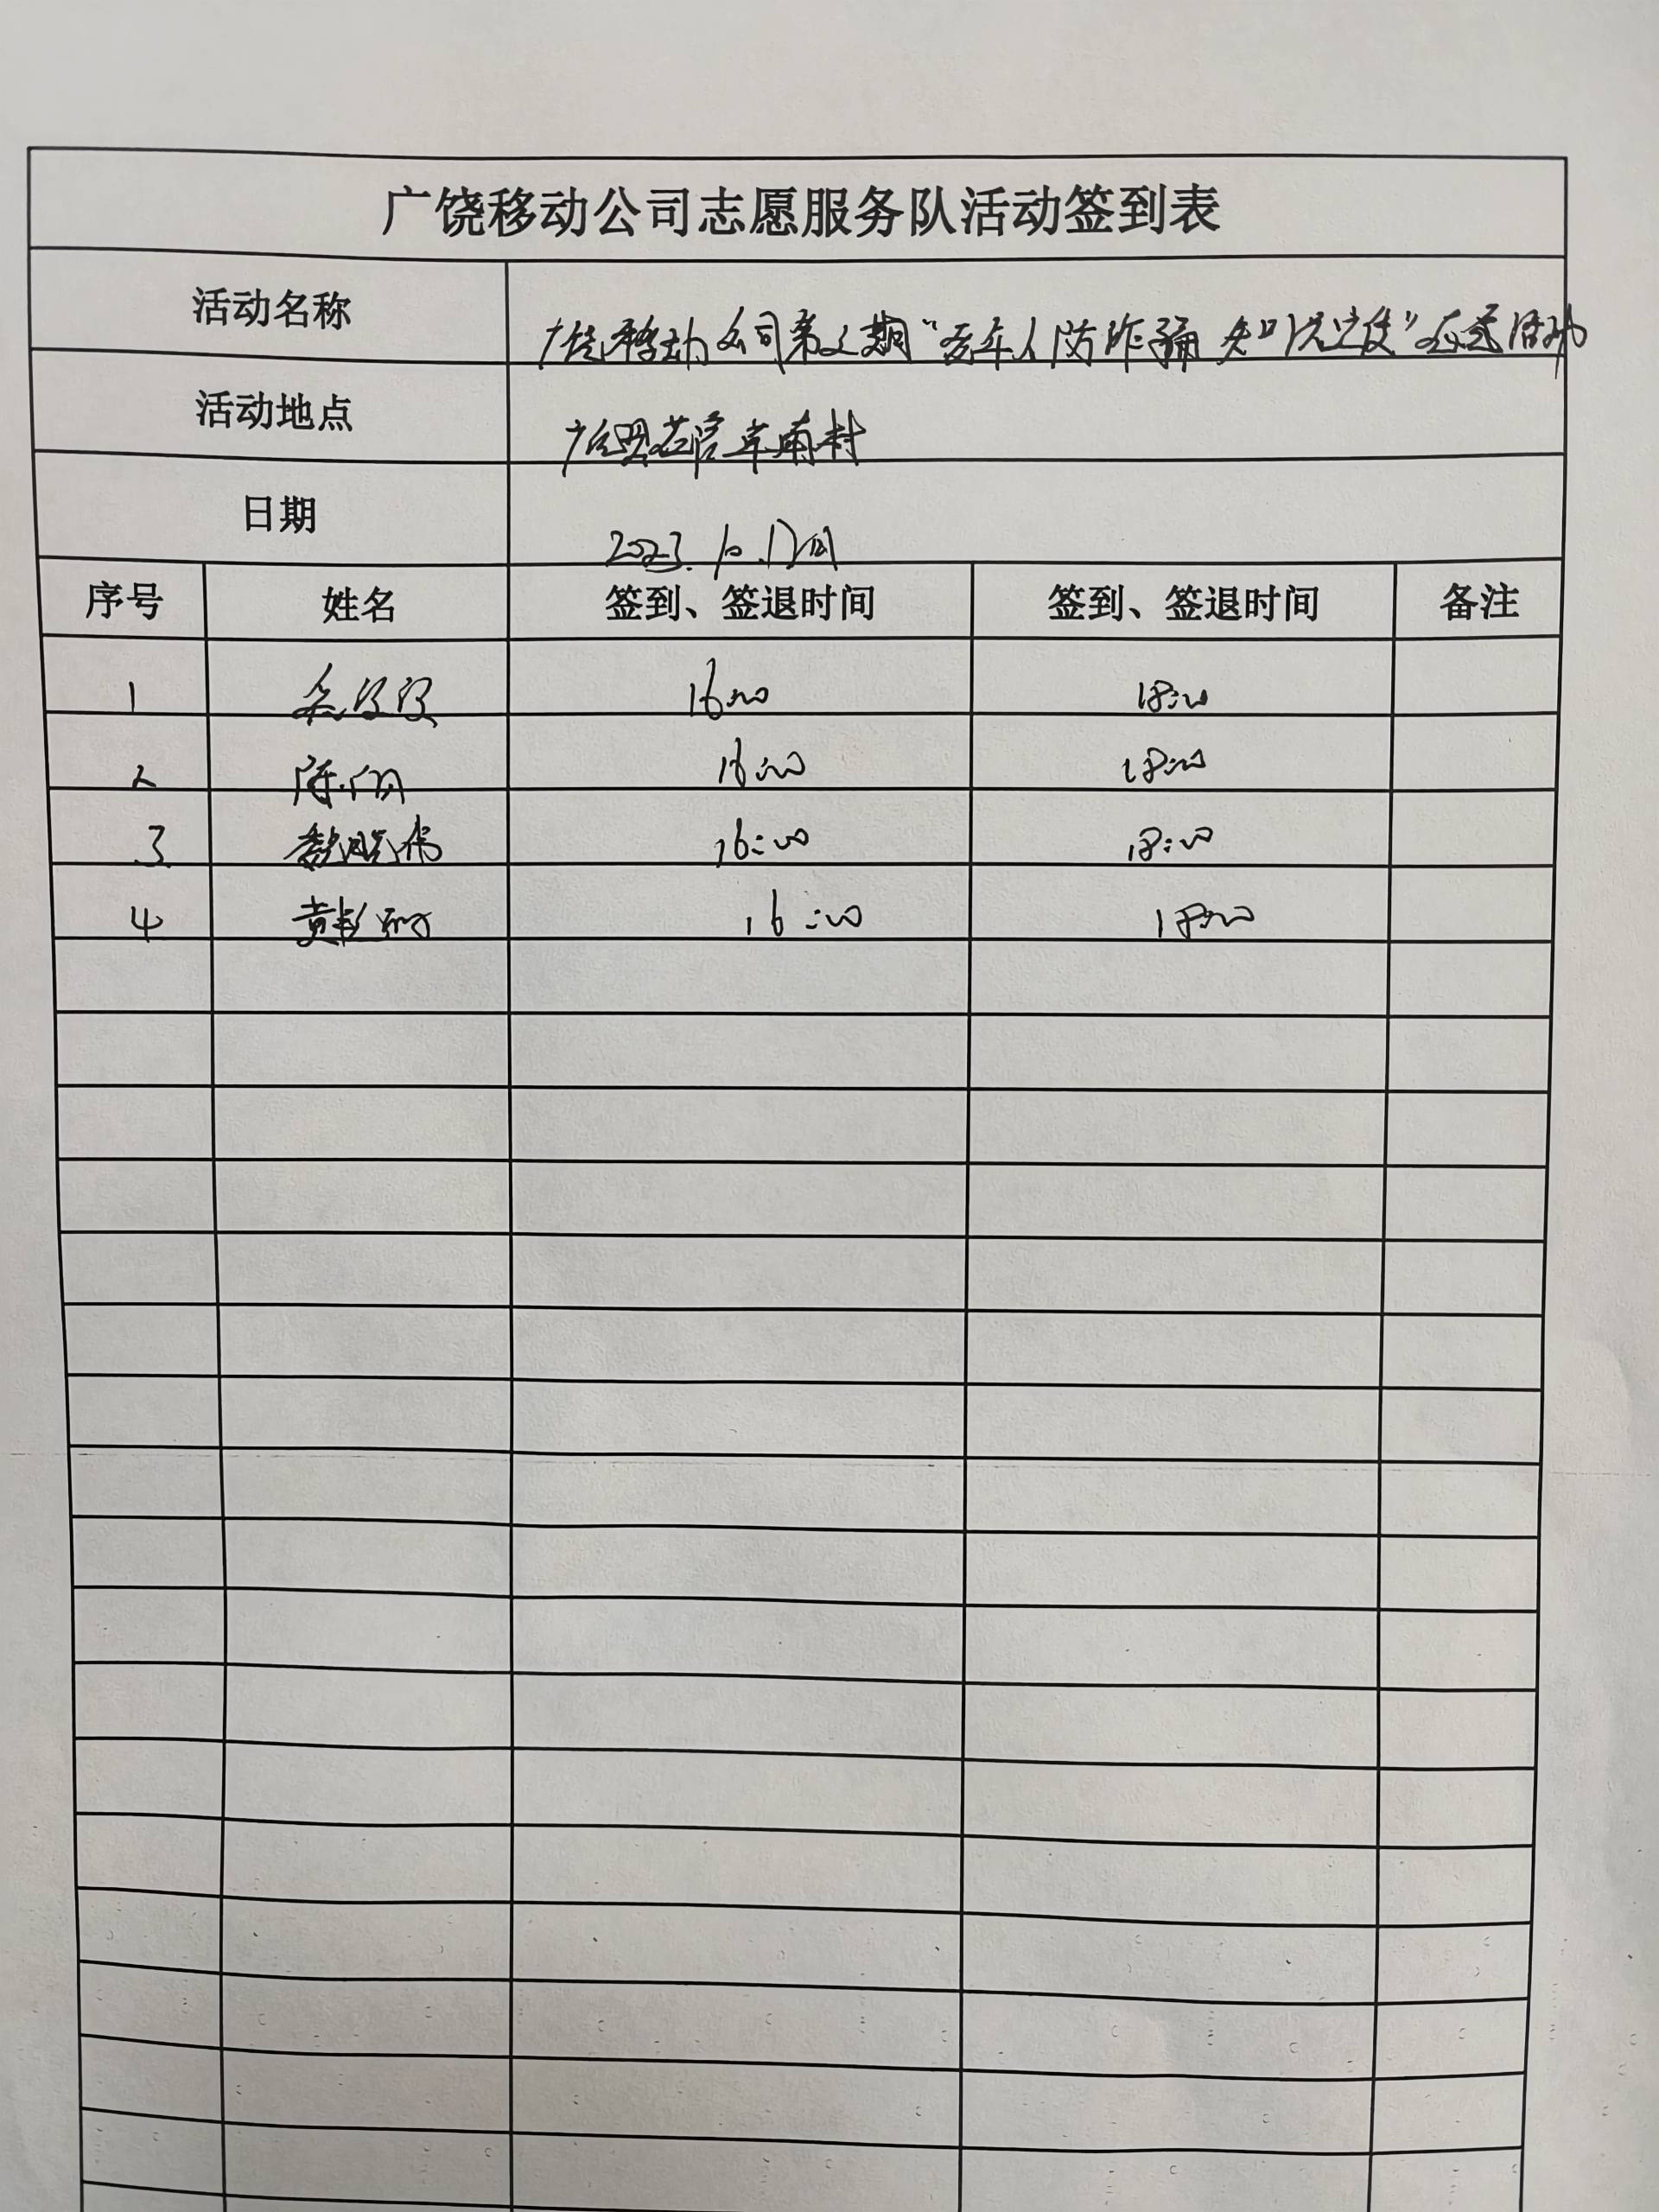 广饶移动公司志愿服务队活动签到表
活动名称 广饶移动公司第 期“老年人防诈骗 知 ” 活动
活动地点 广饶县 村
日期 2023.10.17
序号 姓名 签到、签退时间 签到、签退时间 备注
1 16:00 18:00
2 陈 16:00 18:00
3 魏晓伟 16:00 18:00
4 黄 16:00 18:00